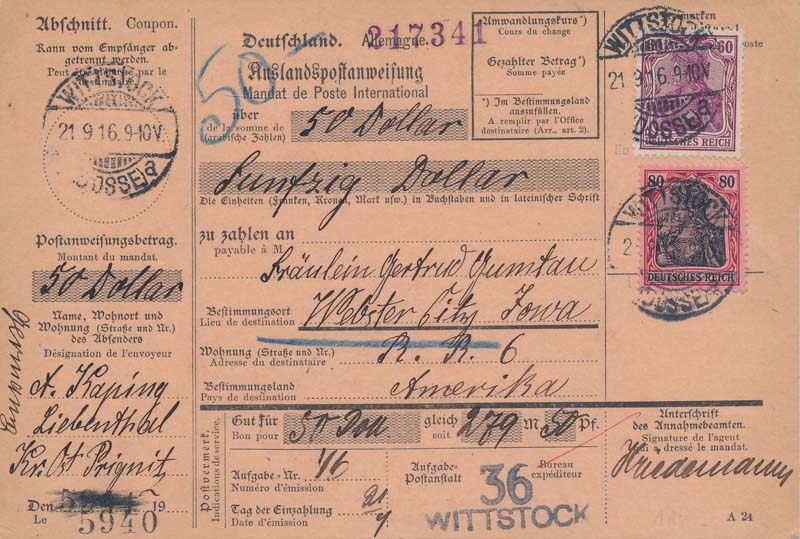 Abschnitt. Coupon.
Kann vom Empfänger ab-
getrennt werden.
Peut être détaché par le
destinataire.
WITTSTOCK
21.9.16.9-10V.
(DOSSE) a
Postanweisungsbetrag.
Montant du mandat.
50 Dollar
Name, Wohnort und
Wohnung (Straße und Nr.)
des Absenders
Désignation de l'envoyeur
A. Kaping
Liebenthal
Kr. Ost Prignitz
Germany
Den 19
Le 5940
50-
Deutschland. Allemagne.
217341
Auslandspostanweisung
Mandat de Poste International
über
de la somme de
(arabische Zahlen)
50 Dollar
Umwandlungskurs*)
Cours du change
Gezahlter Betrag*)
Somme payée
*) Im Bestimmungsland
auszufüllen.
A remplir par l'Office
destinataire (Arr., art. 2).
Fünfzig Dollar
Die Einheiten (Franken, Kronen, Mark usw.) in Buchstaben und in lateinischer Schrift
zu zahlen an
payable à M
Fräulein Gertrud Gumtau
Bestimmungsort
Lieu de destination
Webster City Iowa
Wohnung (Straße und Nr.)
Adresse du destinataire
R. R. 6
Bestimmungsland
Pays de destination
Amerika
Postvermerk.
Indications de service.
Gut für 50 Doll. gleich 279 M. 50 Pf.
Bon pour soit
Aufgabe-Nr. 46
Numéro d'émission
Tag der Einzahlung 21/9
Date d'émission
Aufgabe-
Postanstalt
Bureau
expéditeur
36
WITTSTOCK
Freimarken
poste
60 60
WITTSTOCK
21.9.16.9-10V.
(DOSSE) a
DEUTSCHES REICH
80 80
WITTSTOCK
DEUTSCHES REICH
(DOSSE) a
Unterschrift
des Annahmebeamten.
Signature de l'agent
qui a dressé le mandat.
A 24